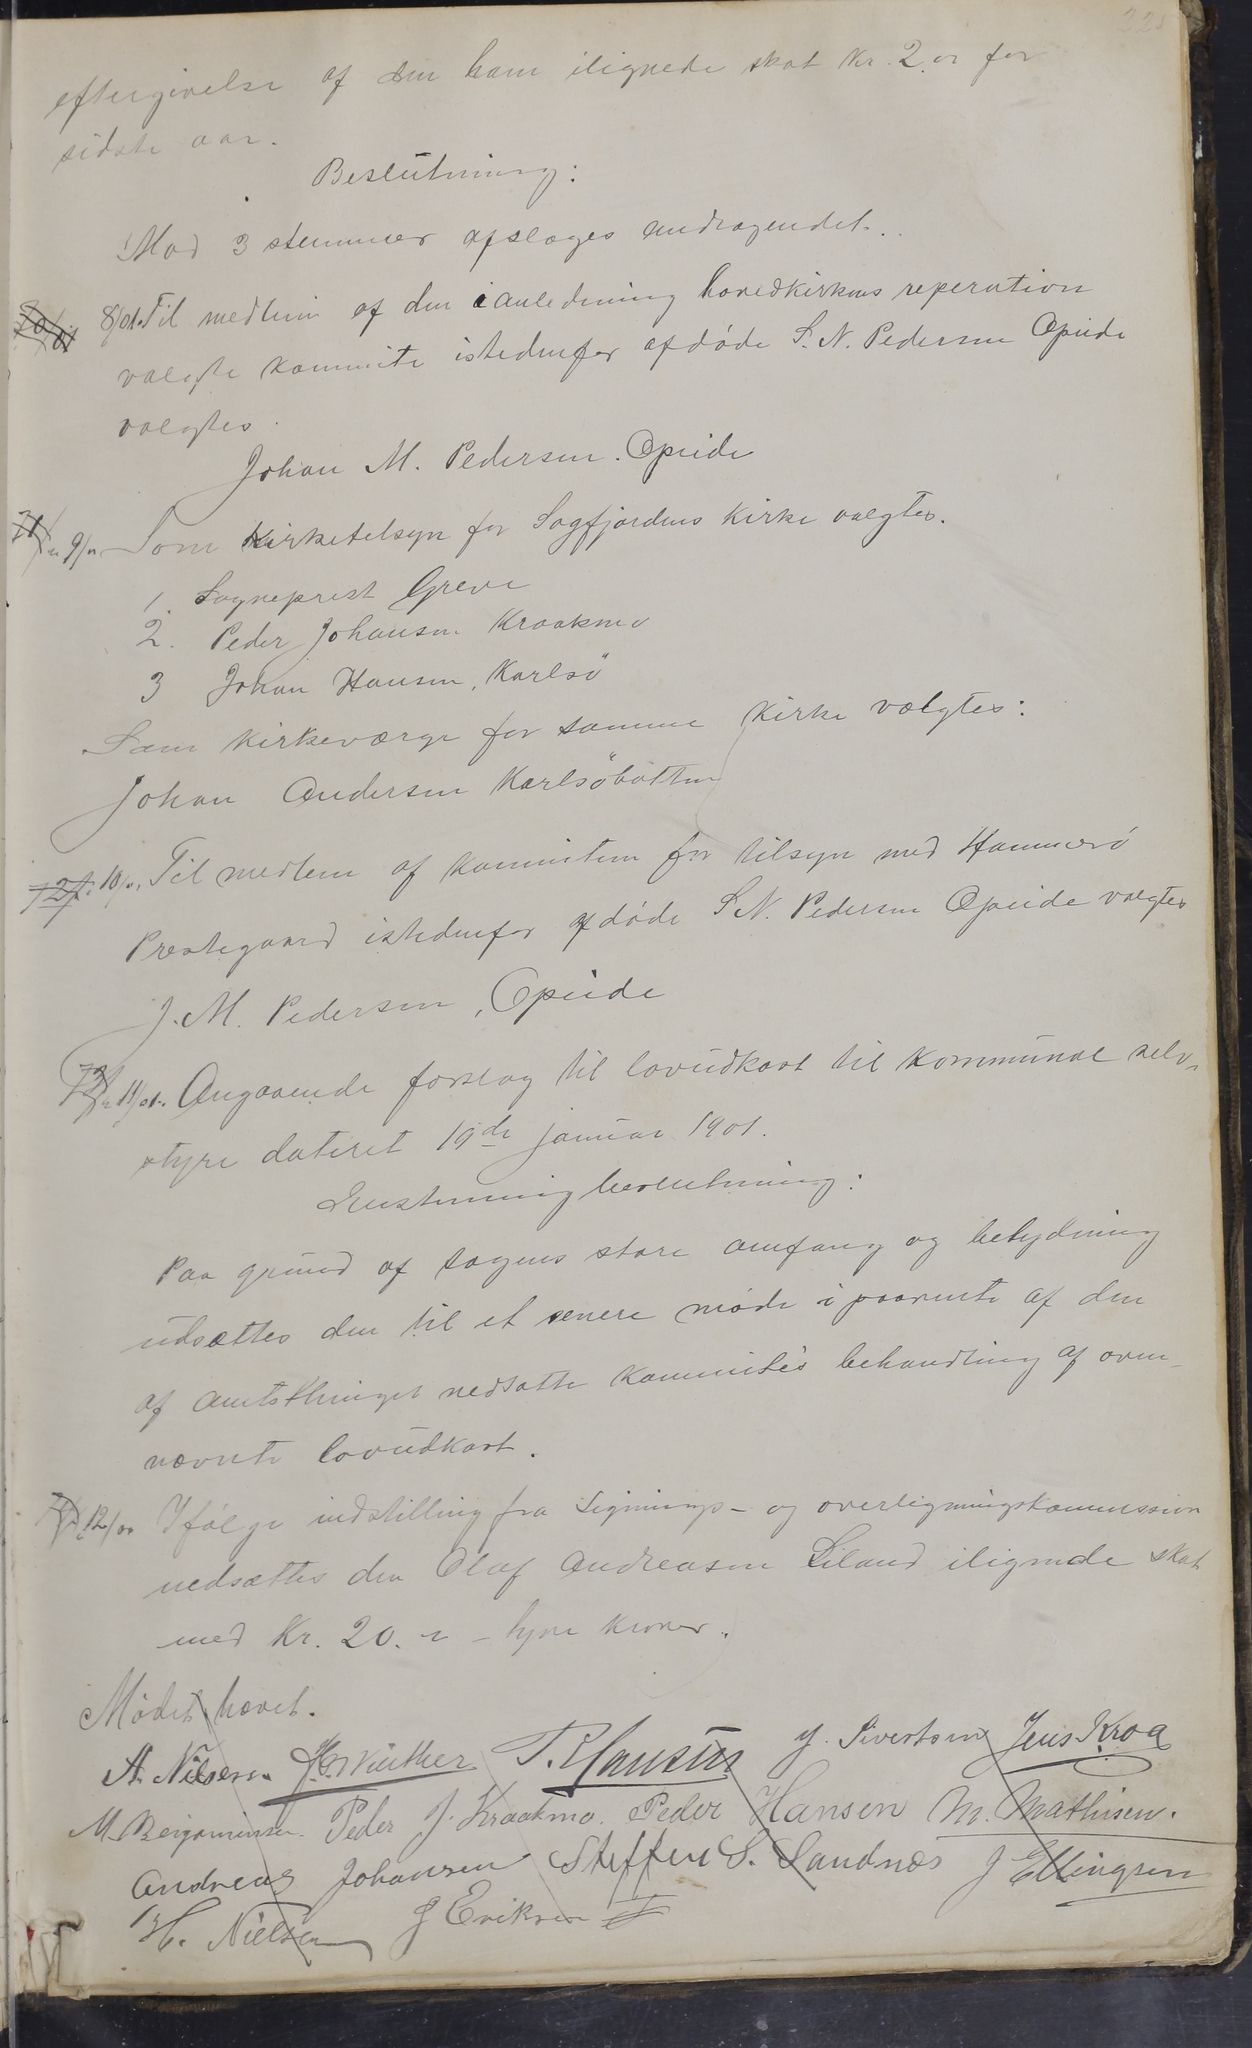 eftergivelse af den ham ilignede skat Kr. 2.00 for
sidste aar.
Beslutning:
Mod 3 stemmer afsloges andragendet.
8/01. Til medlem af den i anledning hovedkirkens reperation
valgte kommite istedenfor afdøde S. N. Pedersen Opeide
valgtes.
Johan M. Pedersen. Opeide
9/01 Som kirketilsyn for Sagfjordens Kirke valgtes.
1. Sogneprest Greve
2. Peder Johansen Kraakmo
3 Johan Hansen, Karlsö
Som kirkeværge for samme kirke vælgtes:
Johan Andersen Karlsöbotten
10/01. Til medlem af kommiteen for tilsyn med Hammerö
Prestegaard istedenfor afdøde S. N. Pedersen Opeide valgtes
J. M. Pedersen, Opeide
11/01. Angaaende forslag til lovudkast til kommunal selv-
styre dateret 19de januar 1901.
Enstemmig beslutning:
Paa grund af sagens store omfang og betydning
udsættes den til et senere møde i paavente af den
af amtsthinget nedsatte Kommite's behandling af oven-
nævnte lovudkast.
12/01 Ifølge indstilling fra Lignings- og overligningskommission
nedsættes den Olaf Andreasen Liland ilignede skat
med Kr. 20.00 – tyve kroner.
Mødet hævet.
A. Nilsen. J. Winther P. Hansen J. Sivertsen Jens Kroa
M. Benjaminsen. Peder J. Kraakmo. Peder Hansen M. Mathisen.
Andreas Johansen Steffen S. Sandnæs J Ellingsen
H. Nielsen J Eriksen